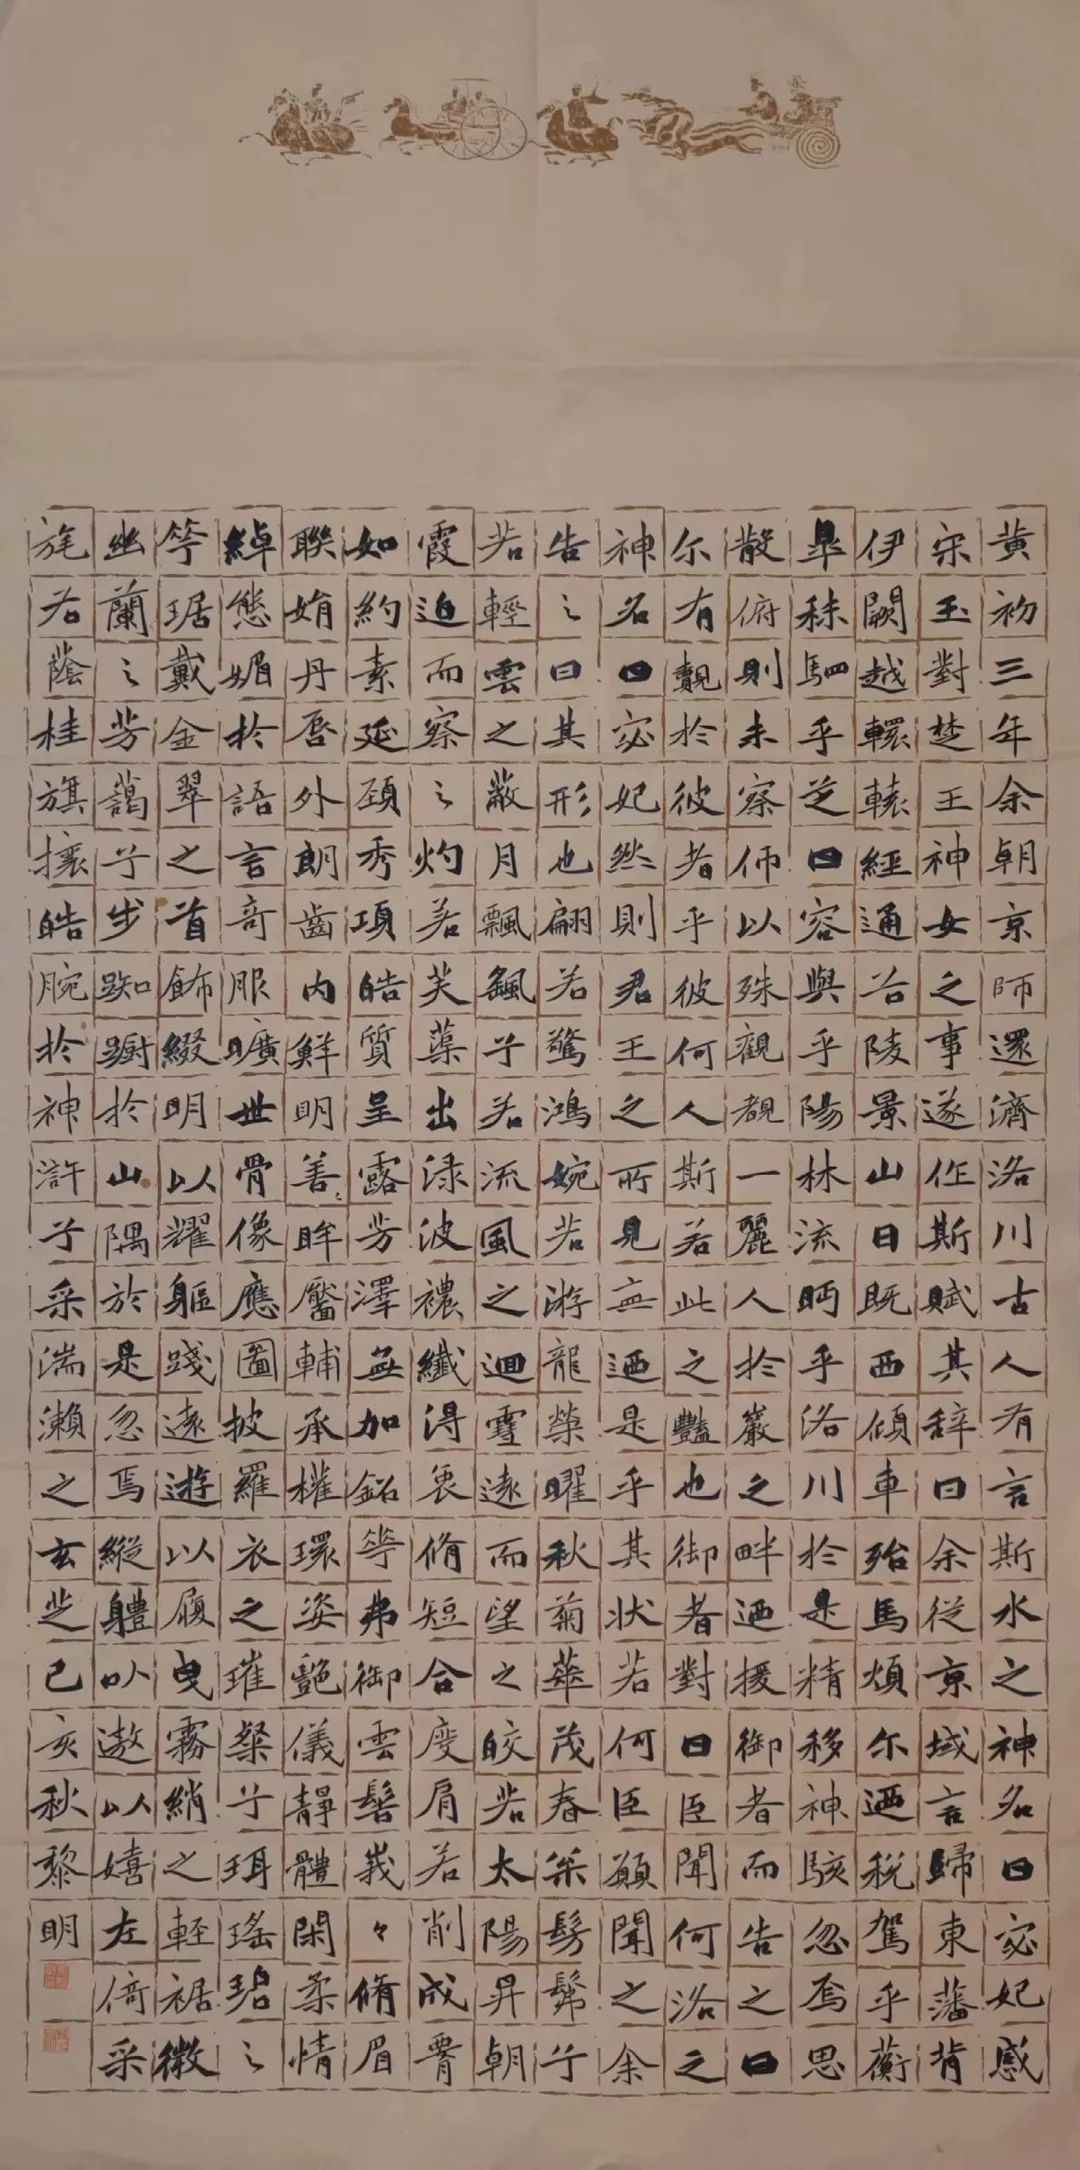 黄初三年余朝京師還濟洛川古人有言斯水之神名曰宓妃感
宋玉對楚王神女之事遂作斯賦其辭曰余從京域言歸東藩背
伊闕越轘轅經通谷陵景山日既西傾車殆馬煩尔迺稅駕乎蘅
皋秣駟乎芝田容與乎陽林流眄乎洛川於是精移神駭忽焉思
散俯則未察仰以殊觀覩一麗人於巖之畔迺援御者而告之曰
尔有覿於彼者乎彼何人斯若此之豔也御者對曰臣聞何洛之
神名曰宓妃然則君王之所見無迺是乎其狀若何臣願聞之余
告之曰其形也翩若驚鴻婉若游龍榮曜秋菊華茂春枀髣髴兮
若輕雲之蔽月飄颻兮若流風之迴雪遠而望之皎若太陽昇朝
霞迫而察之灼若芙蕖出淥波襛纖得衷脩短合度肩若削成腰
如約素延頸秀項皓質呈露芳澤無加鉛華弗御雲髻峩々脩眉
聯娟丹唇外朗齒内鮮明善眸靨輔承權環姿艷儀靜體閑柔情
綽態媚於語言奇服曠世骨像應圖披羅衣之璀粲兮珥瑤碧之
華琚戴金翠之首飾綴明以耀軀踐遠遊以履曳霧綃之輕裾微
幽蘭之芳藹兮步踟躕於山隅於是忽焉縱體以遨以嬉左倚采
旄右蔭桂旗攘皓腕於神滸兮采湍瀨之玄芝己亥秋黎明